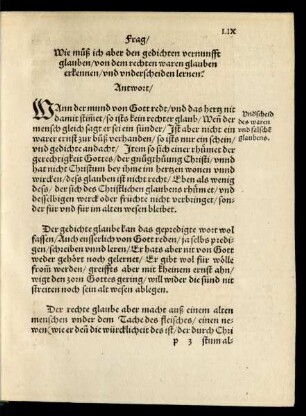 LIX
Frag/
Wie müß ich aber den gedichten vernunfft
glauben/von dem rechten waren glauben
erkennen/vnd vnderscheiden lernen?
Antwort/
WAnn der mund von Gott redt/vnd das hertz nit
damit stim̃et/so ists kein rechter glaub/Weñ der
mensch gleich sagt er sei ein sünder/Ist aber nicht ein
warer ernst zur büß vorhanden/so ists nur ein schein/
vnd gedichte andacht/Item so sich einer rhümet der
gerechtigkeit Gottes/der gnügthüung Christi/vnnd
hat nicht Christum bey ihme im hertzen wonen vund
würcken/dess glauben ist nicht recht/Eben als wenig
dess/der sich des Christlichen glaubens rhümet/vnd
desselbigen werck oder früchte nicht verbringt/son-
der für vnd für im alten wesen bleibet.
Vndscheid
des waren
vnd falschẽ
glaubens.
Der gedicht glaube kan das gepredigte wort wol
fassen/Auch eusserlich von Gott reden/ja selbs predi-
gen/schreiben vnnd leren/Er hats aber nit von Gott
weder gehört noch gelernet/Er gibt wol für wölle
from̃ werden/greiffts aber mit kheinem ernst ahn/
wigt den zorn Gottes gering/will wider die sünd nit
streiten noch sein alt wesen ablegen.
Der rechte glaube aber macht auß einem alten
menschen vnder dem Tache des fleisches/einen ne-
wen(wie er deñ die würcklicheit des ist/der durch Chri
p 3 stum al-